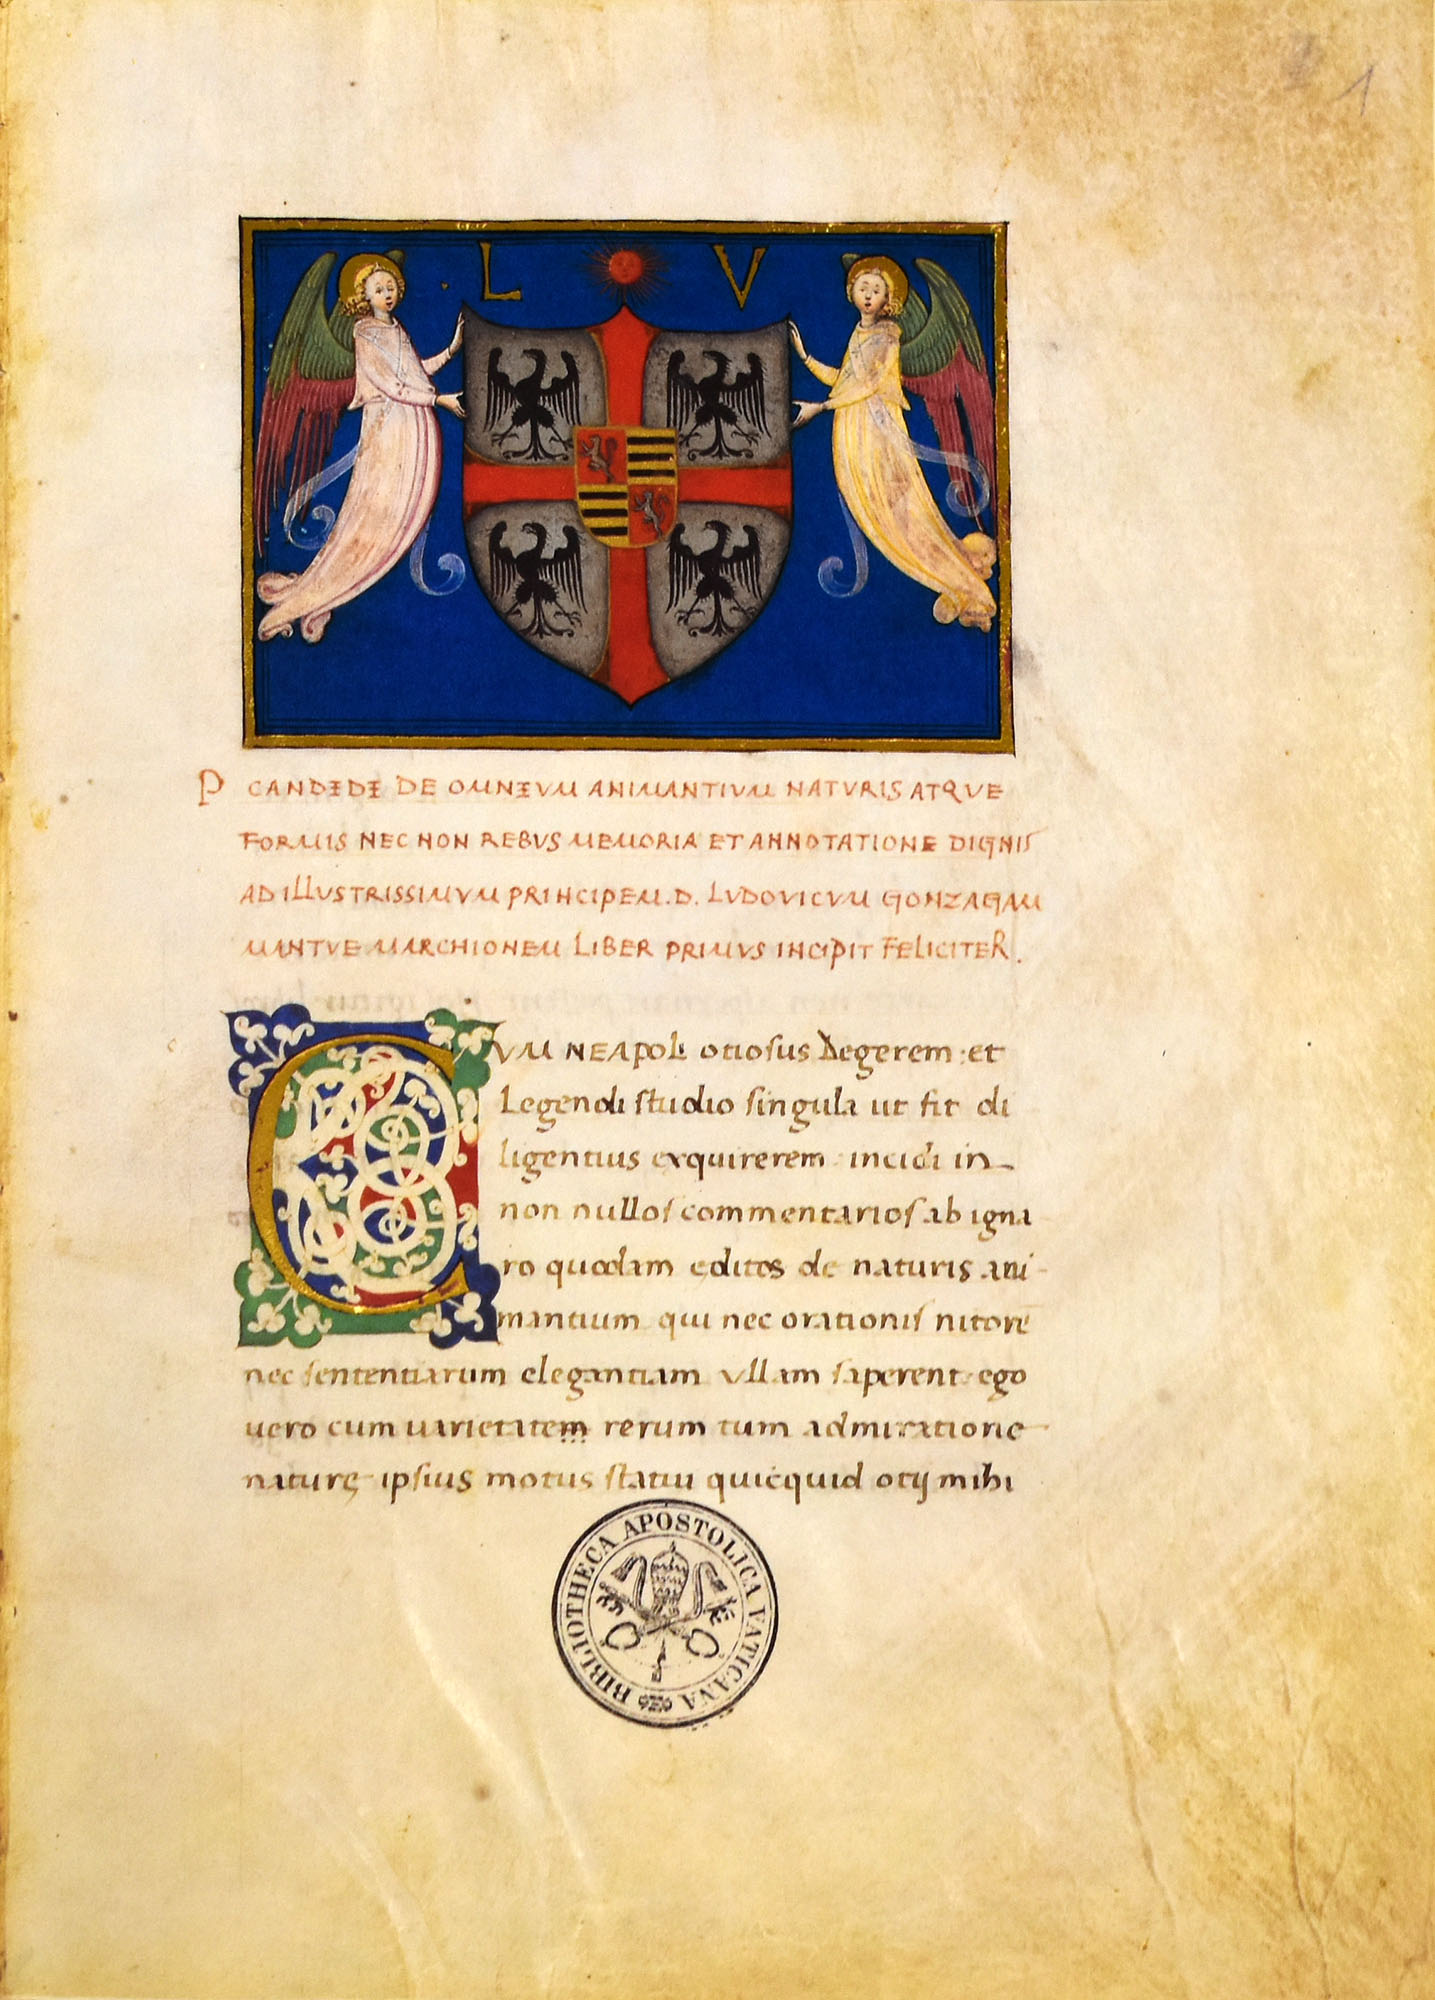 1
L V
P CANDIDI DE OMNIVM ANIMANTIVM NATVRIS ATQVE
FORMIS NEC NON REBVS MEMORIA ET ANNOTATIONE DIGNIS
AD ILLVSTRISSIMVM PRINCIPEM. D. LVDOVICVM GONZAGAM
MANTVE MARCHIONEM LIBER PRIMVS INCIPIT FELICITER.
CVM NEAPOLI otiosus degerem : et
Legendi studio singula ut fit di
ligentius exquirerem incidi in
non nullos commentarios ab igna
ro quodam editos de naturis ani-
mantium qui nec orationis nitore
nec sententiarum elegantiam ullam saperent ego
uero cum uarietatem rerum tum admiratione
naturę ipsius motus statui quicquid otij mihi
BIBLIOTHECA APOSTOLICA VATICANA